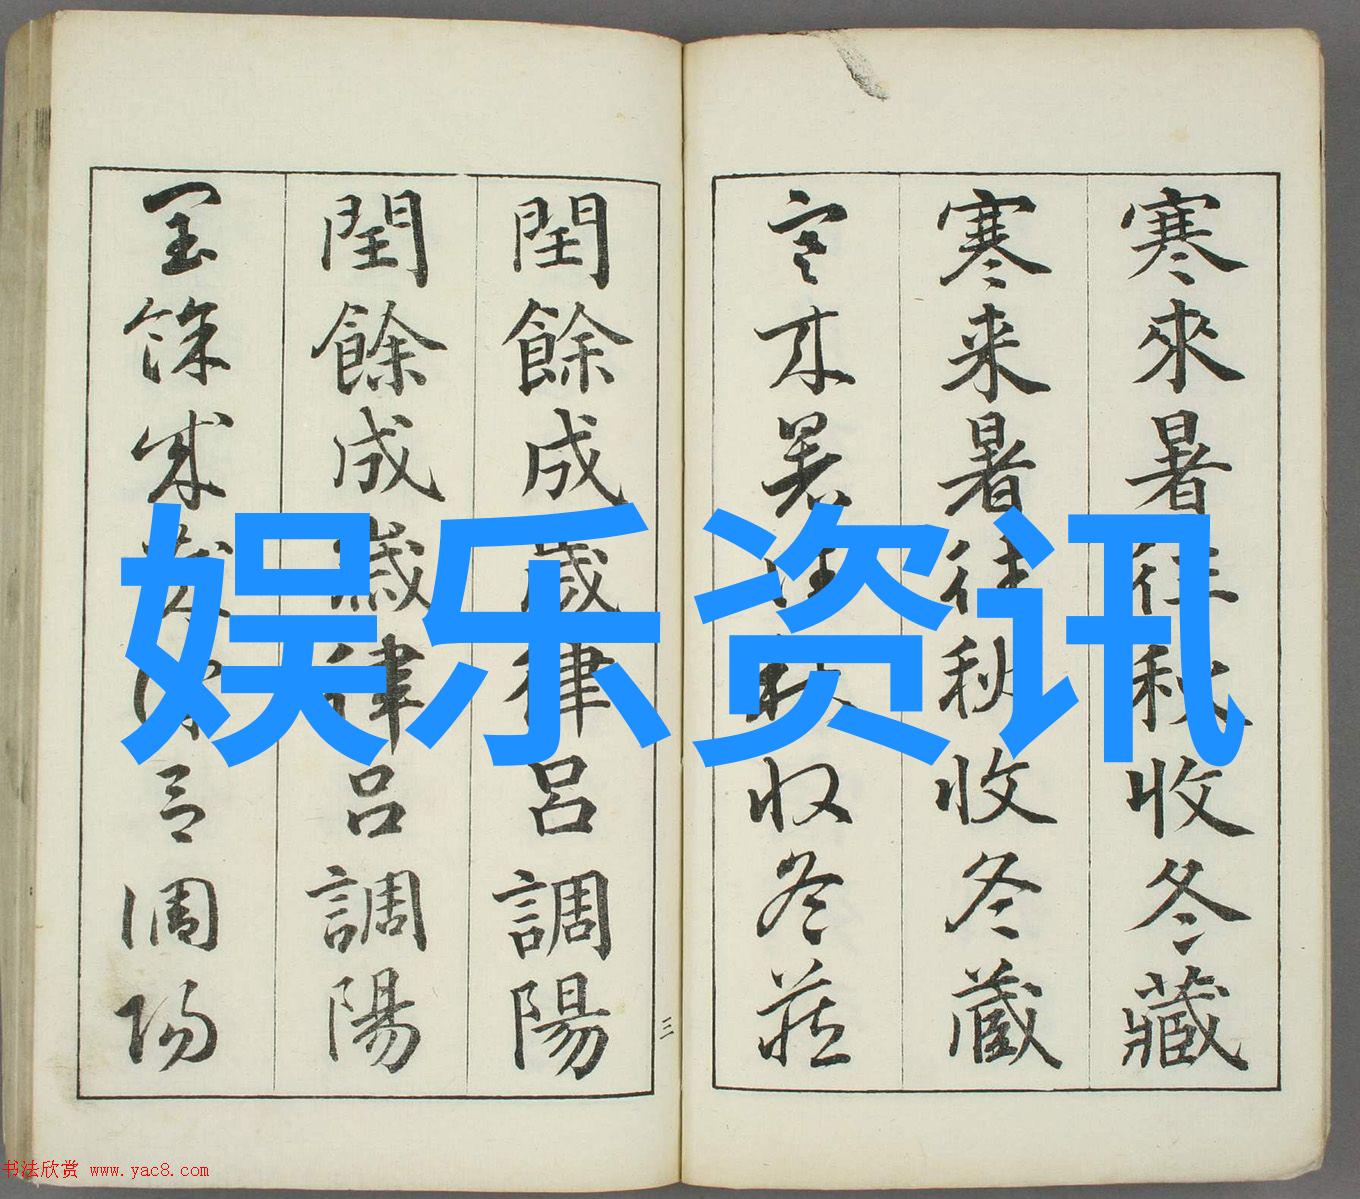 寒來暑往秋收冬藏
寒来暑往秋收冬蔵
寒来暑往秋收冬藏
三
閏餘成歲律呂調陽
閏餘成歲律呂調陽
閏餘成歲律呂調陽
娱乐资讯
书法欣赏 www.yac8.com